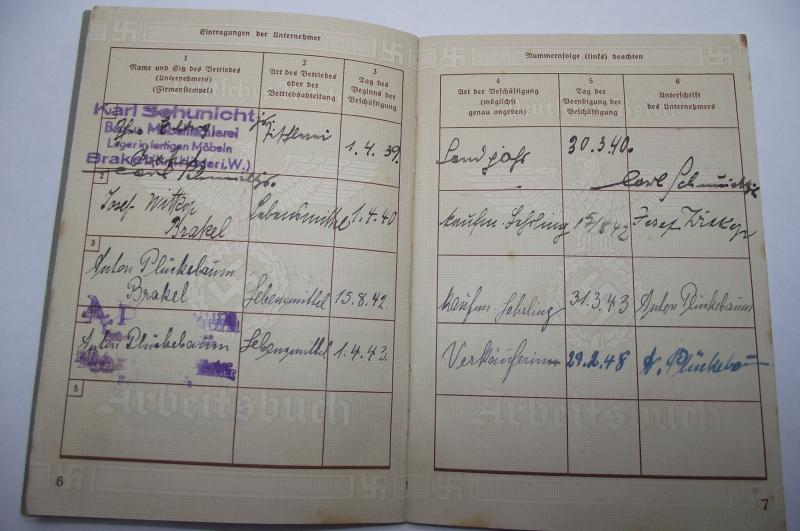 Eintragungen der Unternehmer
1
Name und Sitz des Betriebes
(Unternehmers)
(Firmenstempel)
2
Art des Betriebes
oder der
Betriebsabteilung
3
Tag des
Beginns der
Beschäftigung
Karl Schunicht
Möbeltischlerei
Lager in fertigen Möbeln
Brakel (Kr. Höxter i. W.)
Tischlerei
1.4.39.
Josef
Brakel
Lebensmittel
1.4.40
3
Anton Plückebaum
Brakel
Lebensmittel
15.8.42.
Anton Plückebaum
Lebensmittel
1.4.43.
5
Arbeitsbuch
6
Nummernfolge (links) beachten
4
Art der Beschäftigung
(möglichst
genau angeben)
5
Tag der
Beendigung der
Beschäftigung
6
Unterschrift
des Unternehmers
Landjahr
30.3.40.
kaufm. Lehrling
15/8 42
Josef
kaufm. Lehrling
31.3.43
Anton Plückebaum
Verkäuferin
29.2.48
A. Plückebaum
Arbeitsbuch
7